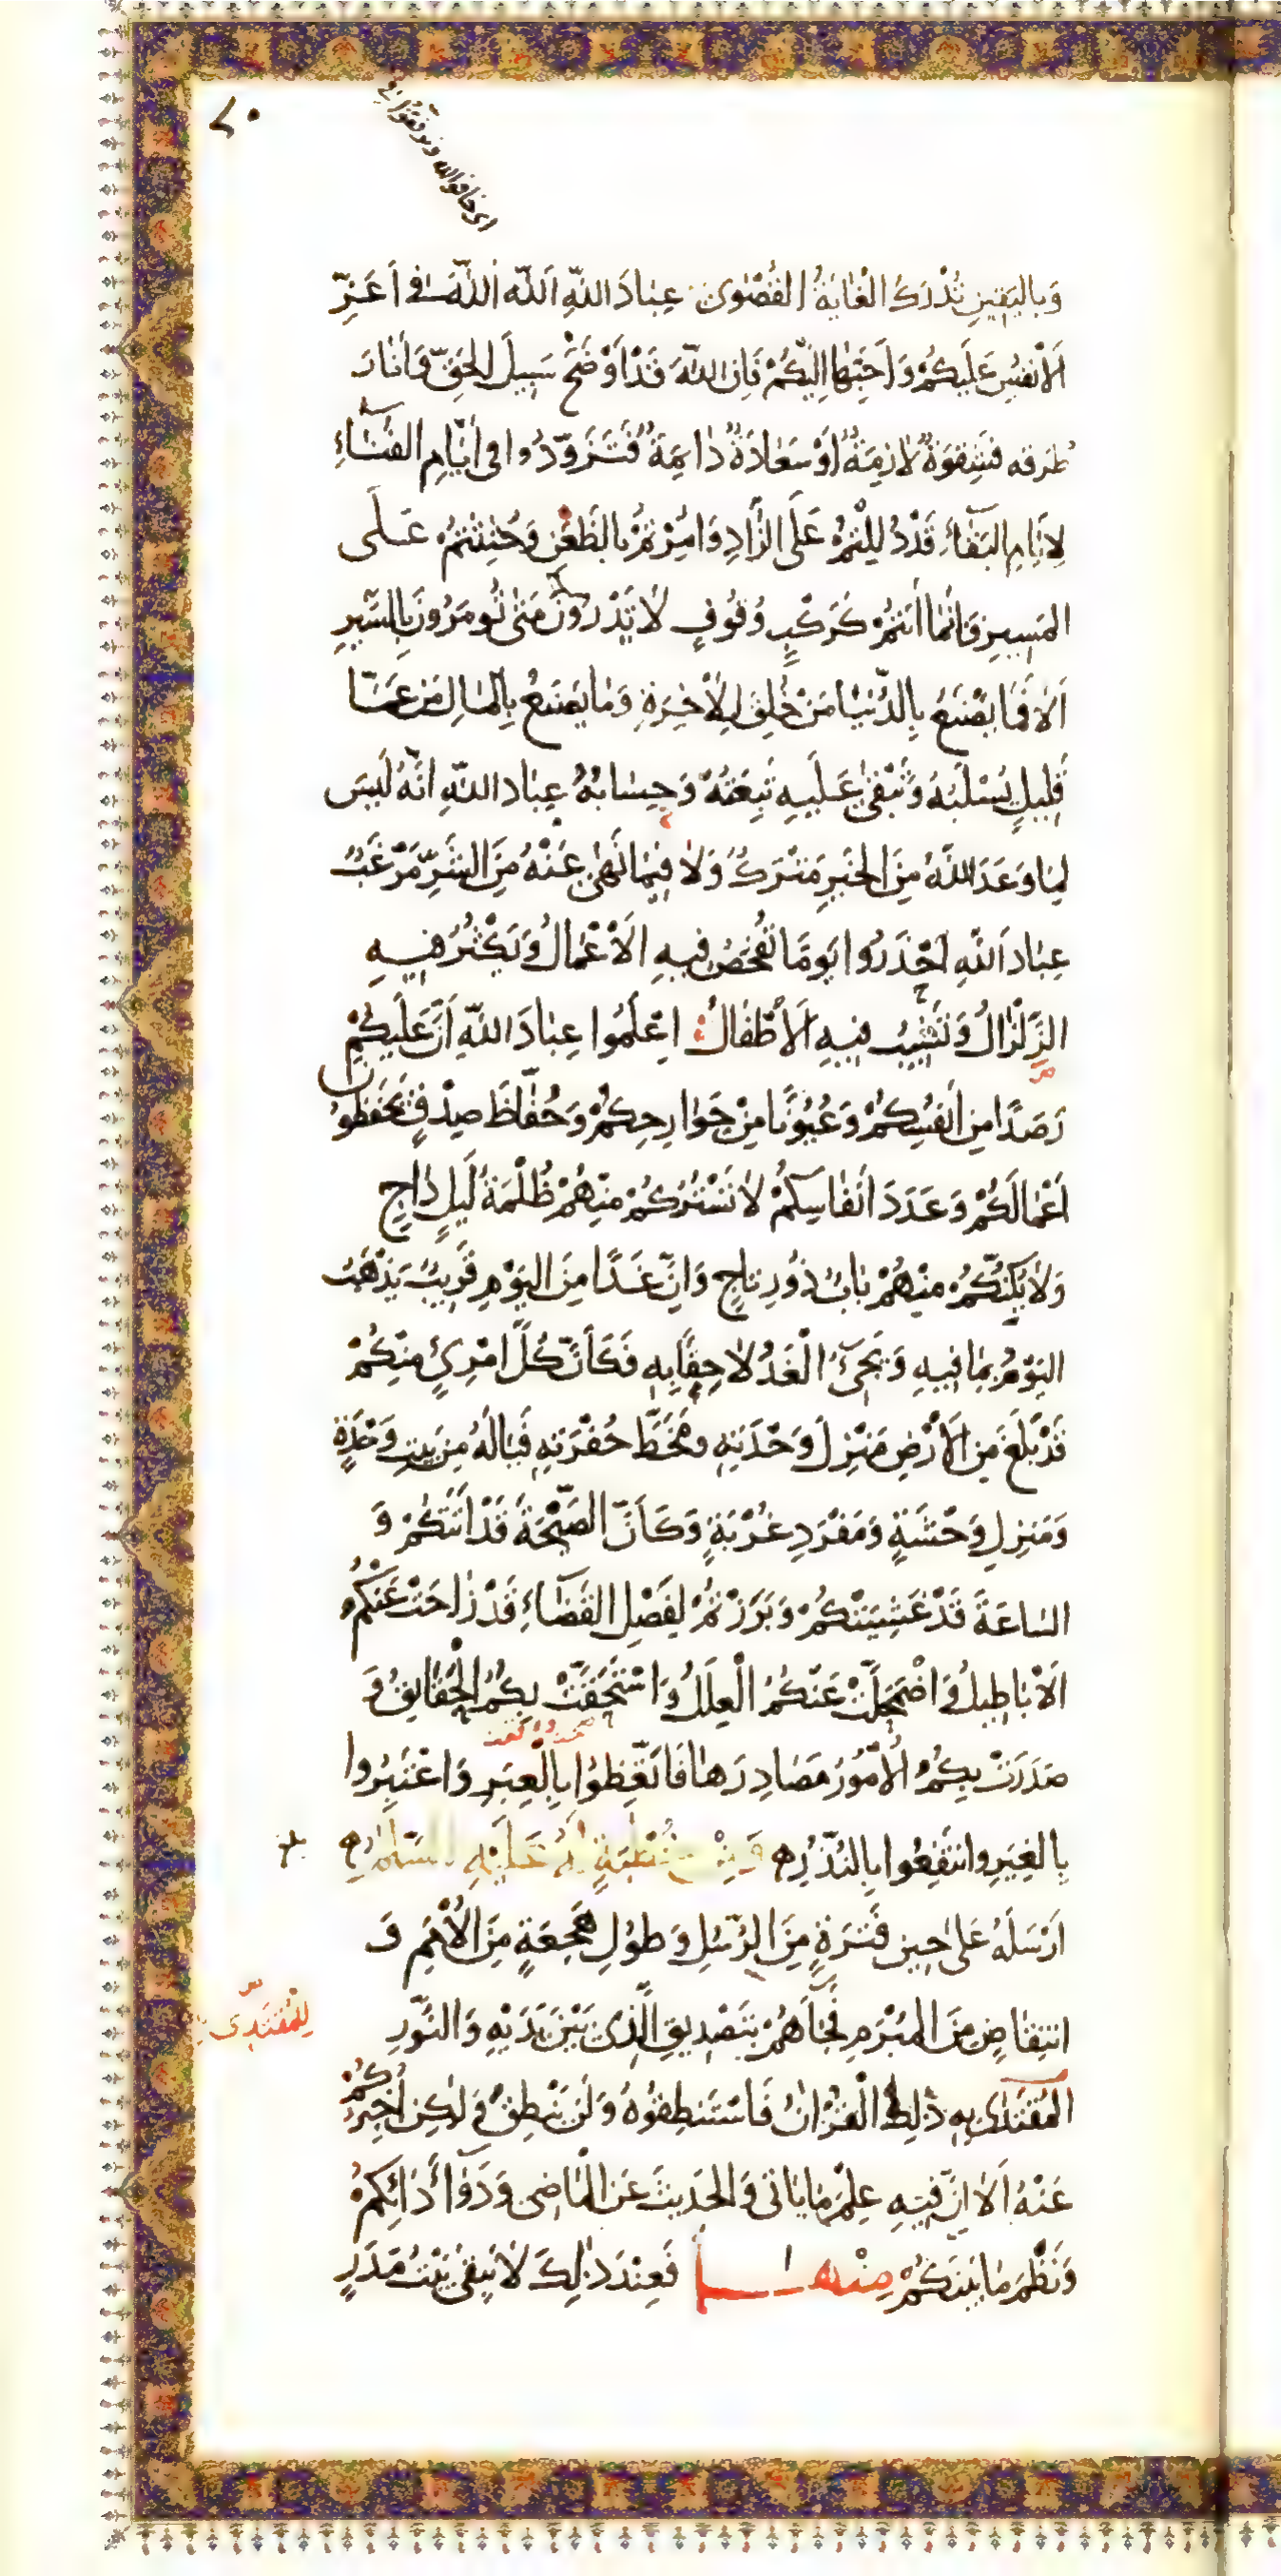 ٨٠
اى خافوا الله وتوقعوا
وَبِالْيَقِينِ تُدْرَكُ الْغَايَةُ الْقُصْوَى عِبَادَ اللّهِ اَللّهَ اَللّهَ فِى اَعَزِّ
الْاَنْفُسِ عَلَيْكُمْ وَاَحَبِّهَا اِلَيْكُمْ فَاِنَّ اللّهَ قَدْ اَوْضَحَ سَبِيلَ الْحَقِّ وَاَنَارَ
طُرُقَه فَشِقْوَةٌ لَازِمَةٌ اَوْ سَعَادَةٌ دَائِمَةٌ فَتَزَوَّدُوا فِى اَيَّامِ الْفَنَاءِ
لِاَيَّامِ الْبَقَاءِ قَدْ دُلِلْتُمْ عَلَى الزَّادِ وَاُمِرْتُمْ بِالظَّعْنِ وَحُثِثْتُمْ عَلَى
الْمَسِيرِ فَاِنَّمَا اَنْتُمْ كَرَكْبٍ وُقُوفٍ لَا تَدْرُونَ مَتٰى تُومَرُونَ بِالسَّيْرِ
اَلَا فَمَا يَصْنَعُ بِالدُّنْيَا مَنْ خُلِقَ لِلْاٰخِرَةِ وَمَا يَصْنَعُ بِالْمَالِ مَنْ عَمَّا
قَلِيلٍ يُسْلَبُهُ وَتَبْقٰى عَلَيْهِ تَبِعَتُهُ وَحِسَابُهُ عِبَادَ اللّهِ اِنَّهُ لَيْسَ
لِمَا وَعَدَ اللّهُ مِنَ الْخَيْرِ مَتْرَكٌ وَلَا فِيمَا نَهٰى عَنْهُ مِنَ الشَّرِّ مَرْغَبٌ
عِبَادَ اللّهِ اِحْذَرُوا يَوْمًا تُفْحَصُ فِيهِ الْاَعْمَالُ وَيَكْثُرُ فِيهِ
الزِّلْزَالُ وَتَشِيبُ فِيهِ الْاَطْفَالُ اِعْلَمُوا عِبَادَ اللّهِ اَنَّ عَلَيْكُمْ
رَصَدًا مِنْ اَنْفُسِكُمْ وَعُيُونًا مِنْ جَوَارِحِكُمْ وَحُفَّاظَ صِدْقٍ يَحْفَظُونَ
اَعْمَالَكُمْ وَعَدَدَ اَنْفَاسِكُمْ لَا تَسْتُرُكُمْ مِنْهُمْ ظُلْمَةُ لَيْلٍ دَاجٍ
وَلَا يُكِنُّكُمْ مِنْهُمْ بَابٌ ذُو رِتَاجٍ وَاِنَّ غَدًا مِنَ الْيَوْمِ قَرِيبٌ يَذْهَبُ
الْيَوْمُ بِمَا فِيهِ وَيَجِىءُ الْغَدُ لَاحِقًا بِهِ فَكَاَنَّ كُلَّ امْرِئٍ مِنْكُمْ
قَدْ بَلَغَ مِنَ الْاَرْضِ مَنْزِلَ وَحْدَتِهِ وَمَخَطَّ حُفْرَتِهِ فَيَالَهُ مِنْ بَيْتِ وَحْدَةٍ
وَمَنْزِلِ وَحْشَةٍ وَمَفْرَدِ غُرْبَةٍ وَكَاَنَّ الصَّيْحَةَ قَدْ اَتَتْكُمْ وَ
السَّاعَةَ قَدْ غَشِيَتْكُمْ وَبَرَزْتُمْ لِفَصْلِ الْقَضَاءِ قَدْ زَاحَتْ عَنْكُمُ
الْاَبَاطِيلُ وَاضْمَحَلَّتْ عَنْكُمُ الْعِلَلُ وَاسْتَحَقَّتْ بِكُمُ الْحَقَايِقُ وَ
صَدَرَتْ بِكُمُ الْاُمُورُ مَصَادِرَهَا فَاتَّعِظُوا بِالْعِبَرِ وَاعْتَبِرُوا
بِالْغِيَرِ وَانْتَفِعُوا بِالنُّذُرِ وَمِنْ خُطْبَةٍ لَهُ عَلَيْهِ السَّلَامُ
اَرْسَلَهُ عَلٰى حِينِ فَتْرَةٍ مِنَ الرُّسُلِ وَطُولِ هَجْعَةٍ مِنَ الْاُمَمِ وَ
انْتِقَاضٍ مِنَ الْمُبْرَمِ فَجَاءَهُمْ بِتَصْدِيقِ الَّذِى بَيْنَ يَدَيْهِ وَالنُّورِ
لِلْمُقْتَدِى
الْمُقْتَدٰى بِهِ ذٰلِكَ الْقُرْاٰنُ فَاسْتَنْطِقُوهُ وَلَنْ يَنْطِقَ وَلٰكِنْ اُخْبِرُكُمْ
عَنْهُ اَلَا اِنَّ فِيهِ عِلْمَ مَا يَاْتِى وَالْحَدِيثَ عَنِ الْمَاضِى وَدَوَاءَ دَائِكُمْ
وَنَظْمَ مَا بَيْنَكُمْ مِنْهَا فَعِنْدَ ذٰلِكَ لَا يَبْقٰى بَيْتُ مَدَرٍ